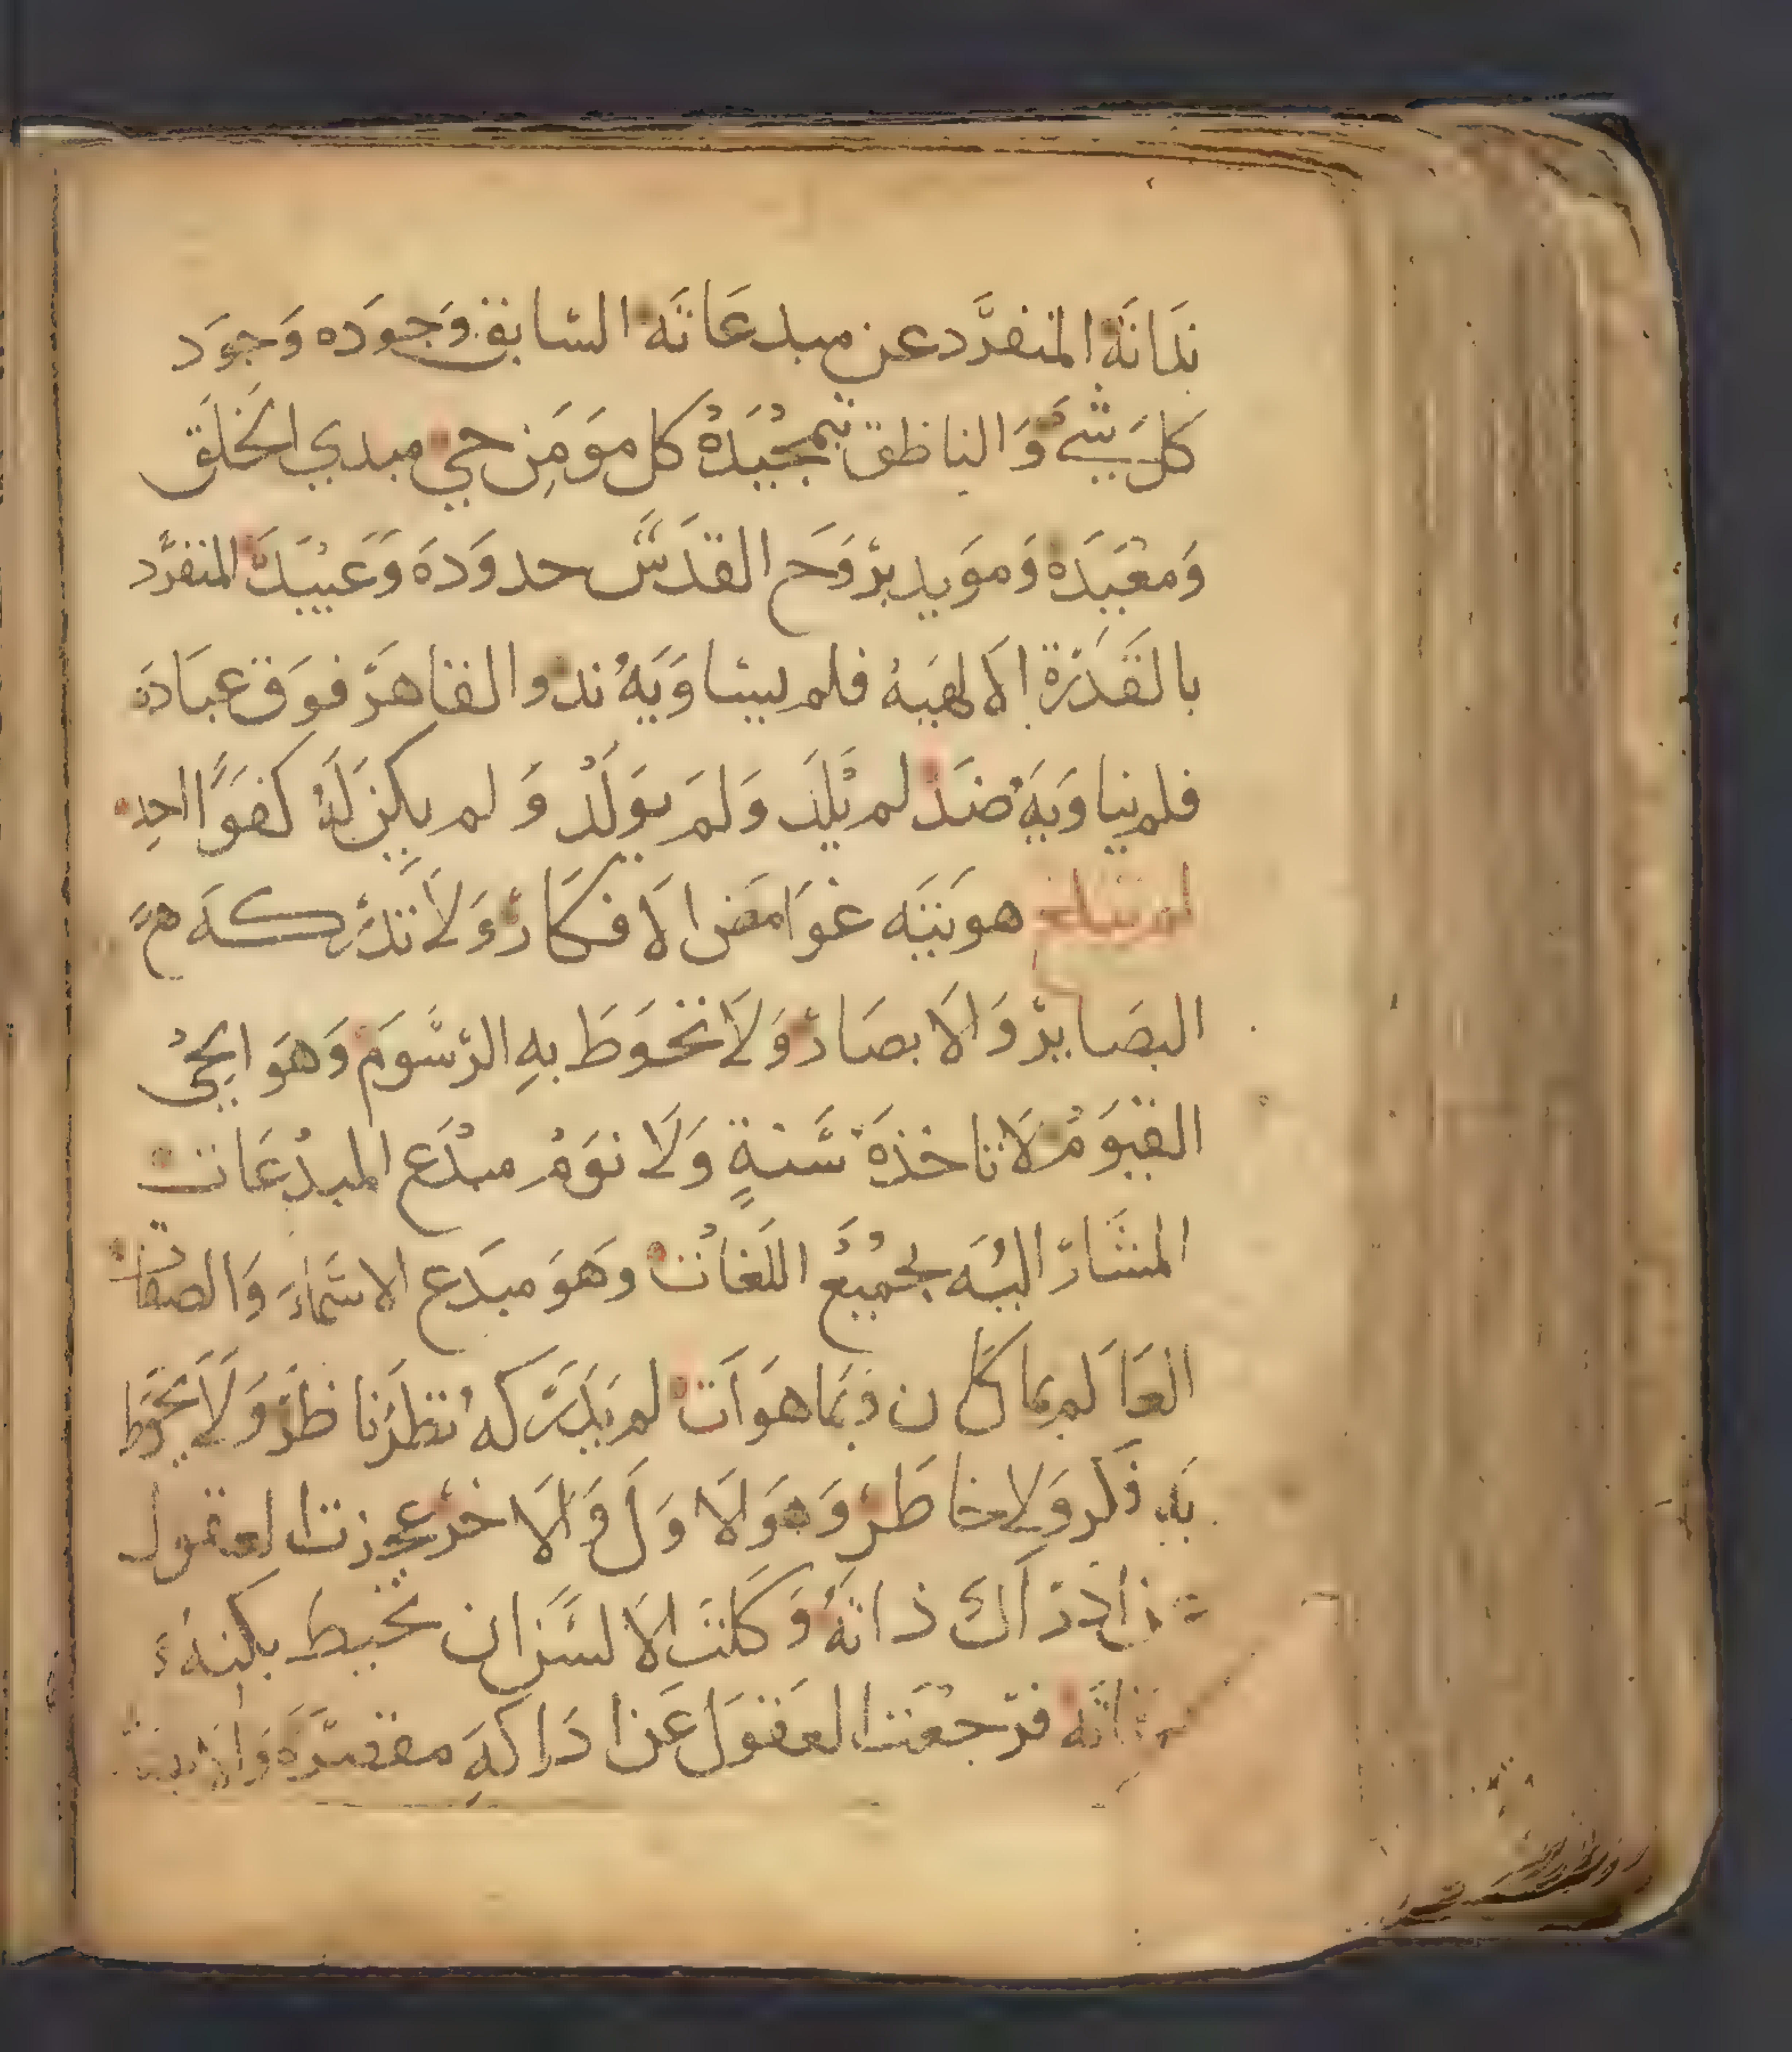 بذاته المنفرد عن مبدعاته السابق وجوده وجود
كل شيء والناطق بتمجيده كل مومن حي مبدي الخلق
ومعيده ومويد بروح القدس حدوده وعبيده المنفرد
بالقدرة الالهيه فلم يساويه ند والقاهر فوق عباده
فلم يناويه ضد لم يلد ولم يولد ولم يكن له كفوا احد
لم تبلغ هويته غوامض الافكار ولا تدركه
البصاير والابصار ولا تحوط به الرسوم وهو الحي
القيوم لا تاخذه سنة ولا نوم مبدع المبدعات
المشار اليه بجميع اللغات وهو مبدع الاسماء والصفات
العالم بما كان وبما هو ات لم يدركه نظر ناظر ولا يحوط
به فكر ولا خاطر وهو الاول والاخر عجزت العقول
ادراك ذاته وكلت الالسن ان تحيط بكنه
فرجعت العقول عن ادراكه مقصره